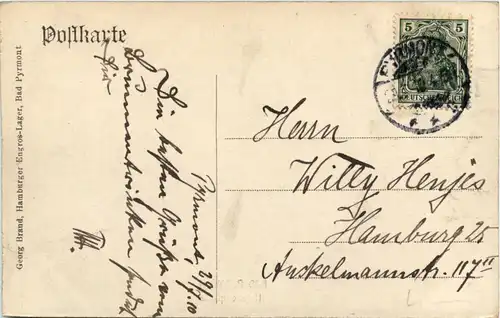 Postkarte
Georg Brand, Hamburger Engros-Lager, Bad Pyrmont
Pyrmont, 29/7.10
Die besten Grüße vom
Brunnentrinken sendet
Dir
5 5
DEUTSCHES REICH
PYRMONT
Herrn
Willy Henjes
Hamburg 25
Auskelmannstr. 117"